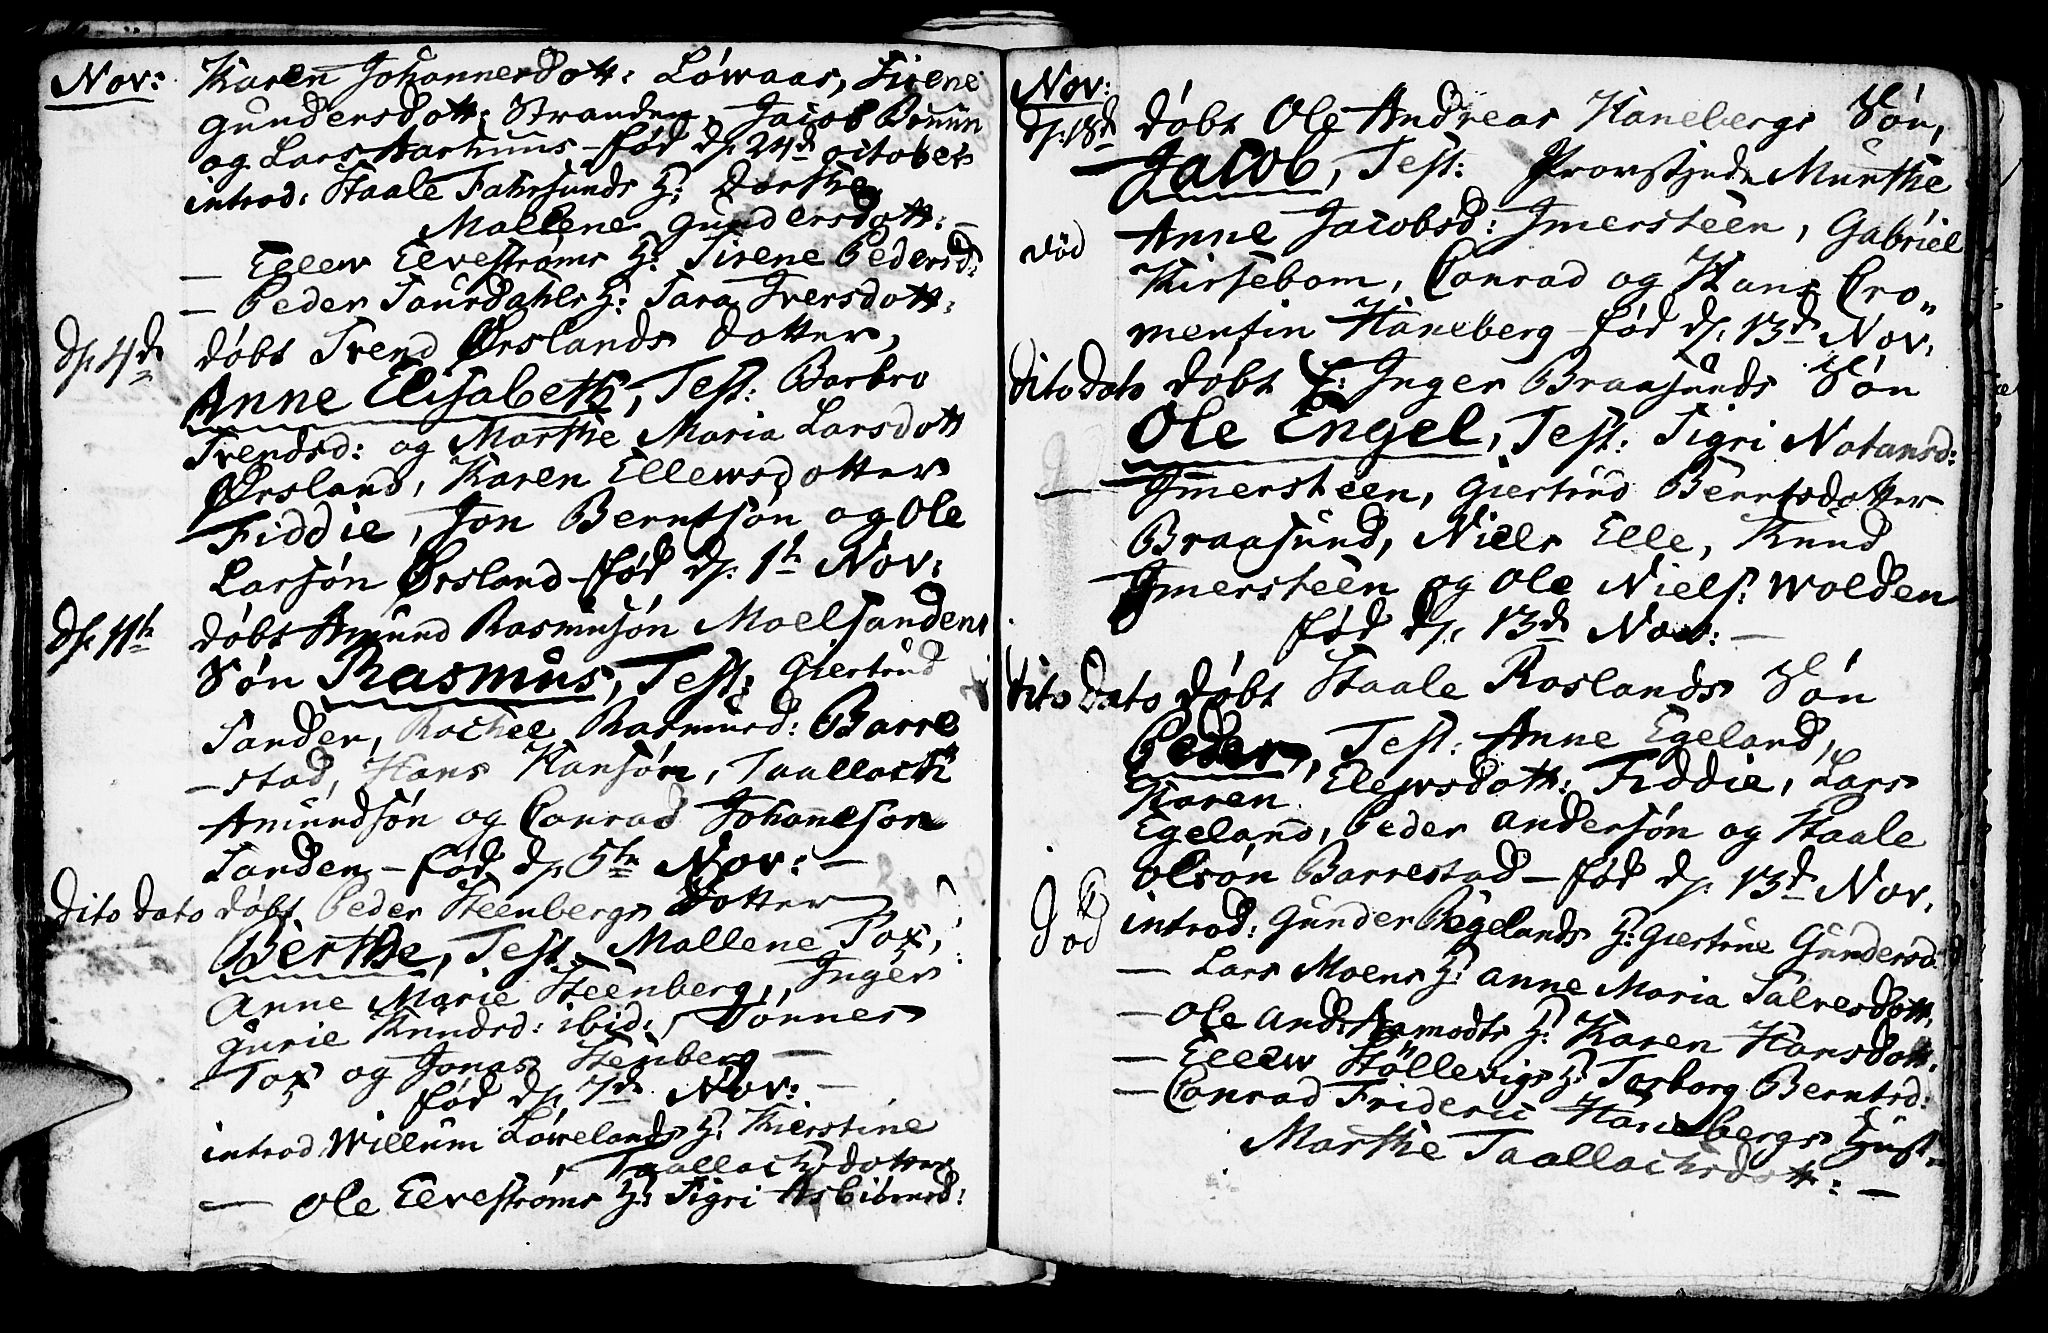 Nov: Karen Johannesdott: Löwaas, Sirene
Gundersdott: Stranden, Jacob Bruun
og Lars Aarhuus – fød dp. 24de octobei
introd: Staale Fahrsunds H: Dorthe
Mallene Gundersdott: –
– Ellew Elvestrøms H: Sirene Pedersd:
– Peder Saurdahls H: Sara Iversdott:
dp. 4de döbt Trend Ørslands dotter,
Anne Elisabeth, Test: Barbro
Trendsd: og Marthe Maria Larsdott
Ørsland, Karen Ellewsdotter
Fiddie, Jon Berntsön og Ole
Larsön Ørsland – fød dp. 1te Nov:
dp. 11te döbt Amund Rasmusön Moelsandens
Sön Rasmus, Test: Giertrud
Sanden, Rachel Rasmusd: Barre
–stad, Hans Hansön, Taallach
Amundsön og Conrad Johanneson
Sanden – fød dp. 5te Nov: –
dito dato döbt Peder Steenbergs Dotter
Berthe, Test. Mallene Tox,
Anne Marie Steenberg, Inger
Gurie Knudsd: ibid:, Tönnes
Tox og Jonas Stenberg –
fød dp. 7de Nov: –
introd Willum Löwelands H: Kierstine
Taallachsdotter
– Ole Elvestrøms H: Sigri Asbiörnsd:
Nov:
dp. 18de döbt Ole Andreas Hanebergs Sön,
Jacob, Test: Provstinde Munthe
Anne Jacobsd: Imersteen, Gabriel
död
Kirsebom, Conrad og Hans Cro„
mentin Haneberg – fød dp. 13de Nov.
dito dato döbt Inger Braasunds Sön
Ole Engel, Test: Sigri Notansd:
Imersteen, Giertrud Berntsdotter
Braasund, Niels Elle, Knud
Imersteen og Ole Niels: Wolden
fød dp. 13de Nov: –
dito dato döbt Staale Roslands Sön
Peder, Test: Anne Egeland,
Karen Elewsdott: Fiddie, Lars
Egeland, Peder Andersön og Staale
Olsön Barrestad – fød dp. 13de Nov.
död
introd: Gunder Regelands H: Giertrue Gundersd.
– Lars Moens H: Anne Maria Salvesdott.
– Ole And: Aamodts H: Karen Hansdott.
– Ellew Stöllevigs H: Torborg Berntsd:
– Conrad Frideric Hanebergs Hust„
Marthe Taallachsdott: –